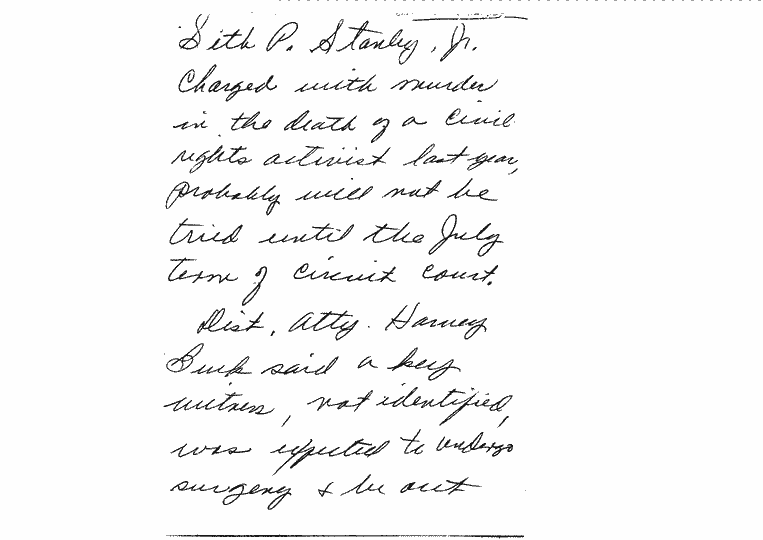 Seth P. Stanley, Jr.
Charged with murder
in the death of a civil
rights activist last year,
probably will not be
tried until the July
term of circuit court.
Dist. Atty. Harvey
Buck said a key
witness, not identified,
was expected to undergo
surgery & be out